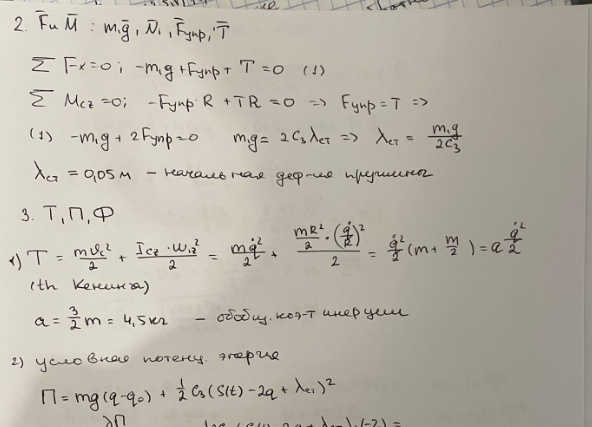 2. F̄ и M̄ : m₁ḡ, N̄₁, F̄упр, T̄
∑ Fx=0; -m₁g+Fупр+T=0 (1)
∑ Mcz=0; -Fупр·R+TR=0 => Fупр=T =>
(1) -m₁g+2Fупр=0 m₁g=2C₃λст => λст = m₁g/2C₃
λст=0,05м – начальная деф-ия пружины
3. T, П, Ф
1) T = mVc²/2 + Icz·ω₁z²/2 = mq̇²/2 + (mR²/2·(q̇/R)²)/2 = q̇²/2 (m+m/2) = a q̇²/2
(th Кенинга)
a = 3/2 m = 4,5кг – обобщ. коэф-т инерции
2) условная потенц. энергия
П = mg(q-q₀) + 1/2 C₃(S(t)-2q+λст)²
∂П